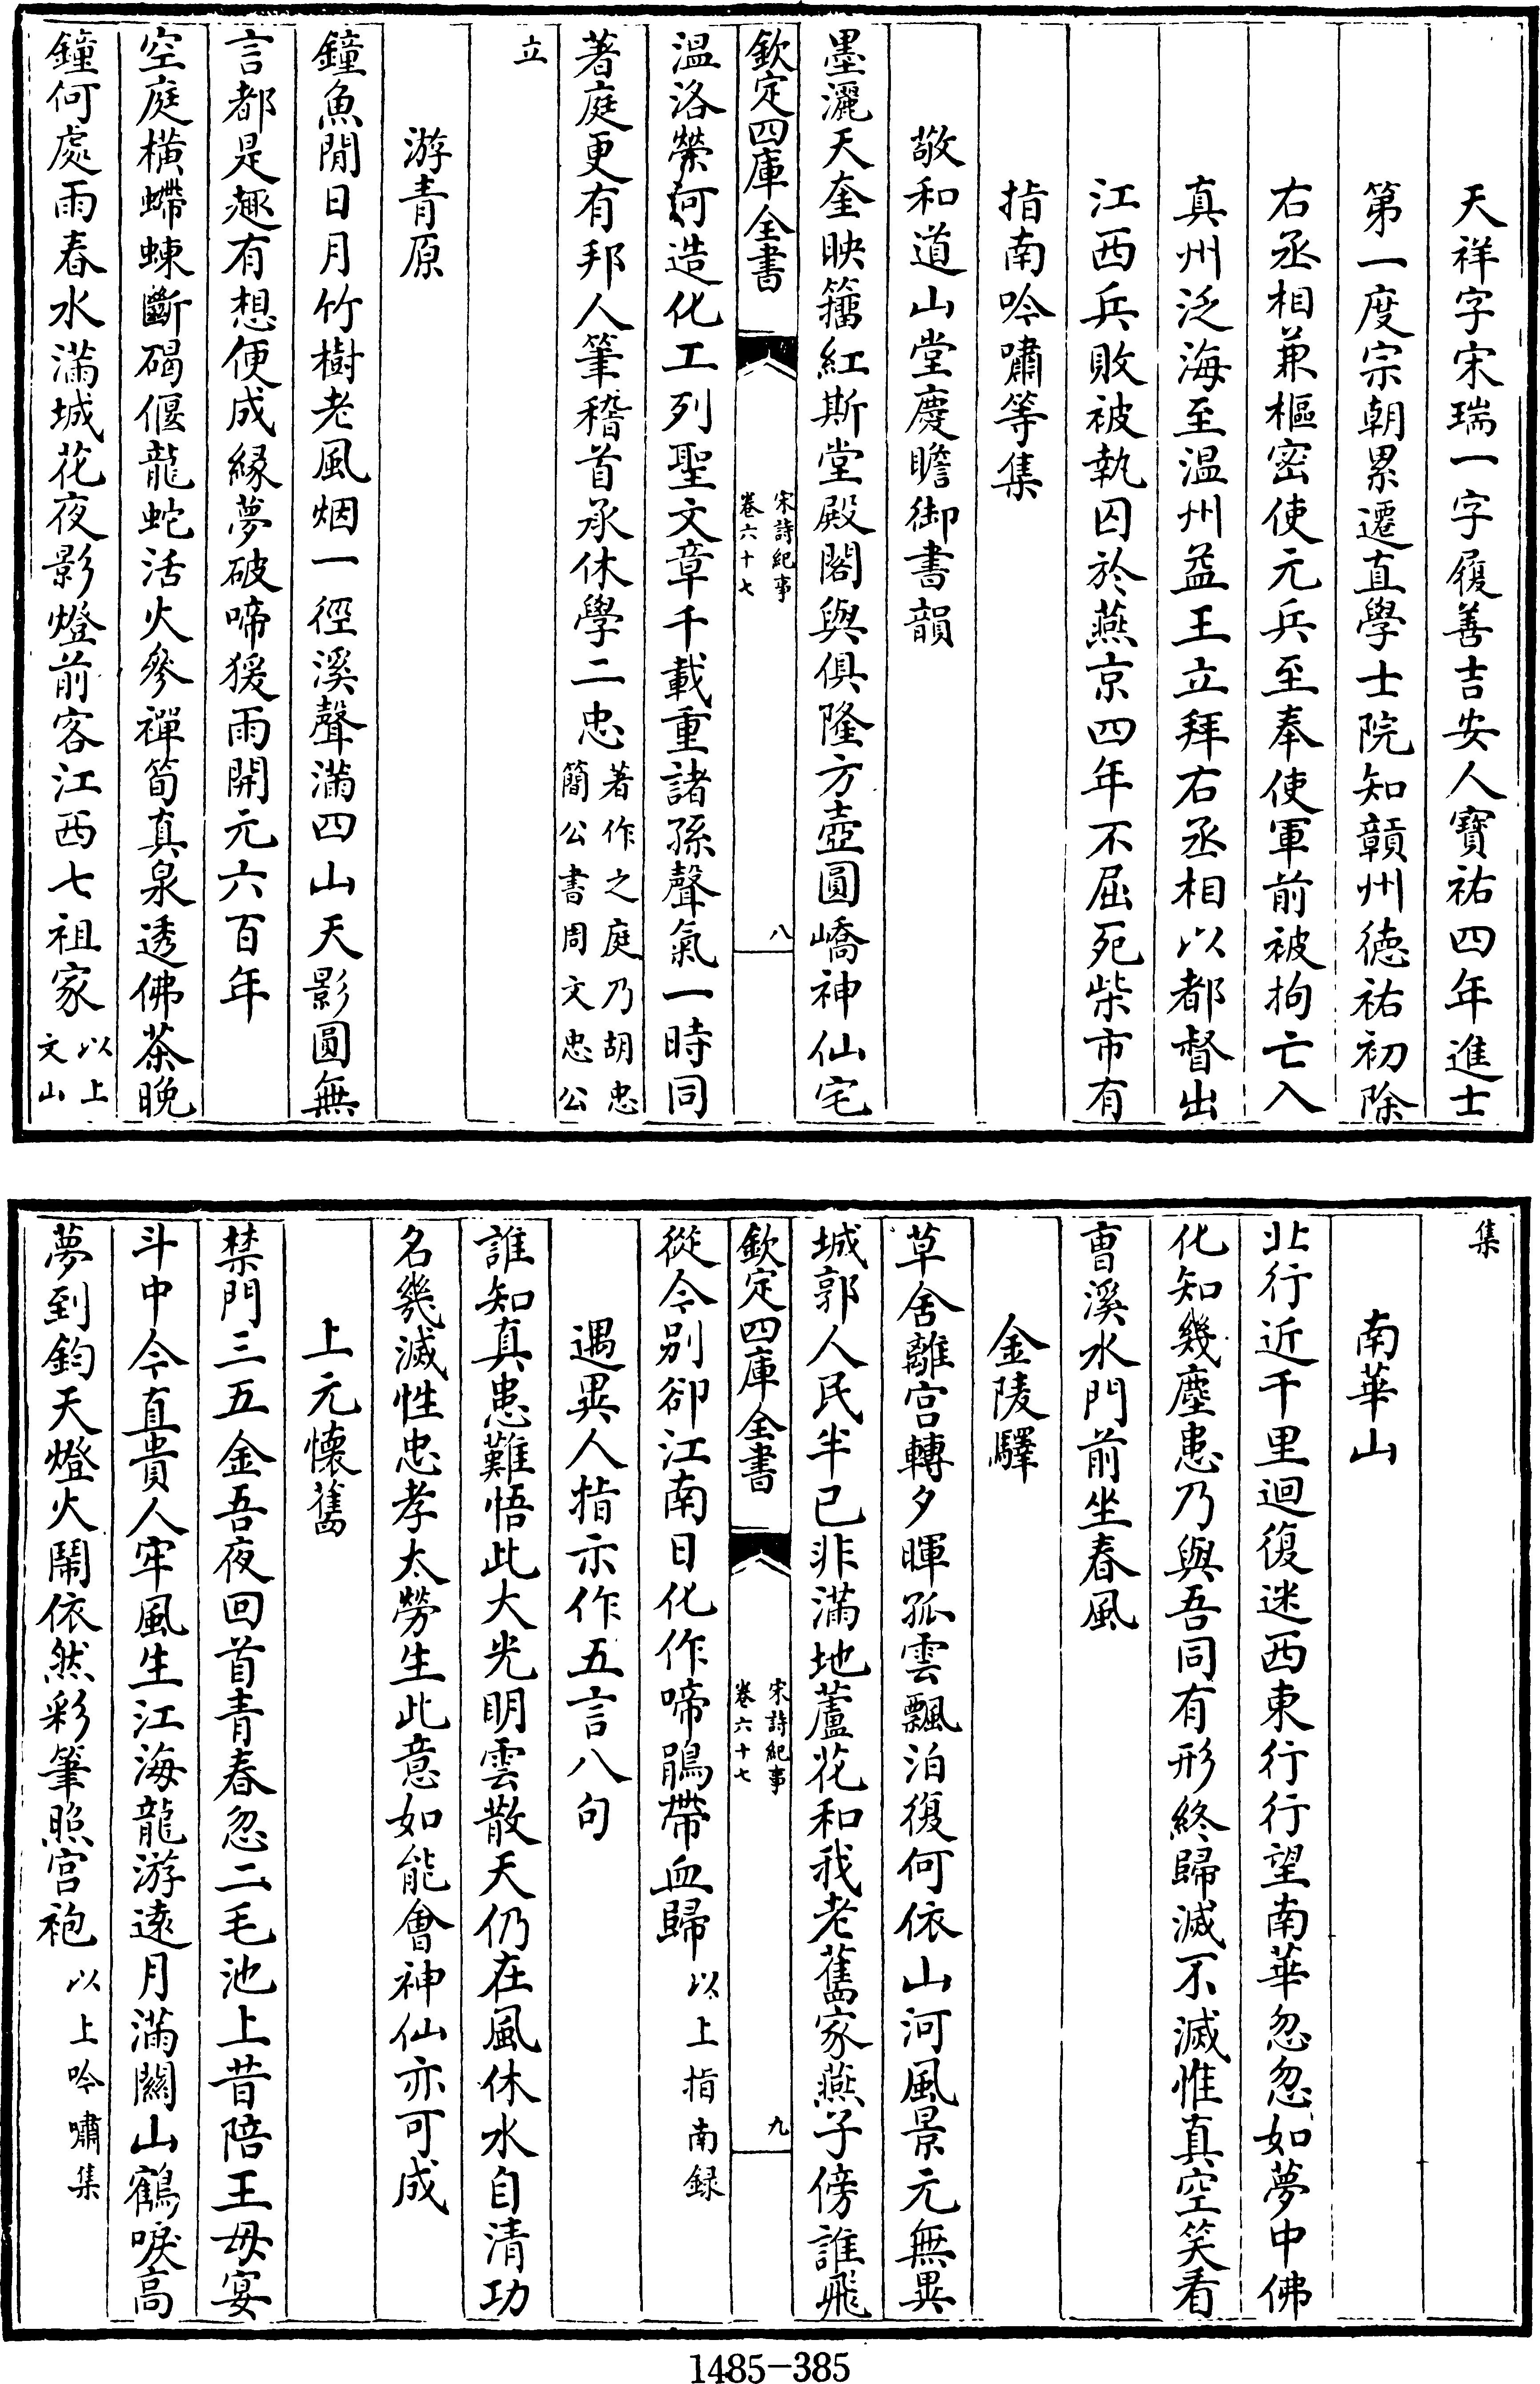 天祥字宋瑞一字履善吉安人寶祐四年進士
第一度宗朝累遷直學士院知贛州德祐初除
右丞相兼樞密使元兵至奉使軍前被拘亡入
真州泛海至温州益王立拜右丞相以都督出
江西兵敗被執囚於燕京四年不屈死柴市有
指南吟嘯等集
敬和道山堂慶瞻御書韻
墨灑天奎映籀紅斯堂殿閣與俱隆方壺圓嶠神仙宅
欽定四庫全書
宋詩紀事
卷六十七
八
温洛榮河造化工列聖文章千載重諸孫聲氣一時同
著庭更有邦人筆稽首承休學二忠
著作之庭乃胡忠
簡公書周文忠公
立
游青原
鐘魚閒日月竹樹老風烟一徑溪聲滿四山天影圓無
言都是趣有想便成緣夢破啼猨雨開元六百年
空庭橫螮蝀斷碣偃龍蛇活火參禪筍真泉透佛茶晚
鐘何處雨春水滿城花夜影燈前客江西七祖家
以上
文山
集
南華山
北行近千里迴復迷西東行行望南華忽忽如夢中佛
化知幾塵患乃與吾同有形終歸滅不滅惟真空笑看
曹溪水門前坐春風
金陵驛
草舍離宫轉夕暉孤雲飄泊復何依山河風景元無異
城郭人民半已非滿地蘆花和我老舊家燕子傍誰飛
欽定四庫全書
宋詩紀事
卷六十七
九
從今别卻江南日化作啼鵑帶血歸 以上指南録
遇異人指示作五言八句
誰知真患難悟此大光明雲散天仍在風休水自清功
名幾滅性忠孝太勞生此意如能會神仙亦可成
上元懷舊
禁門三五金吾夜回首青春忽二毛池上昔陪王母宴
斗中今直貴人牢風生江海龍游遠月滿關山鶴唳高
夢到鈞天燈火鬧依然彩筆照宫袍 以上吟嘯集
1485-385